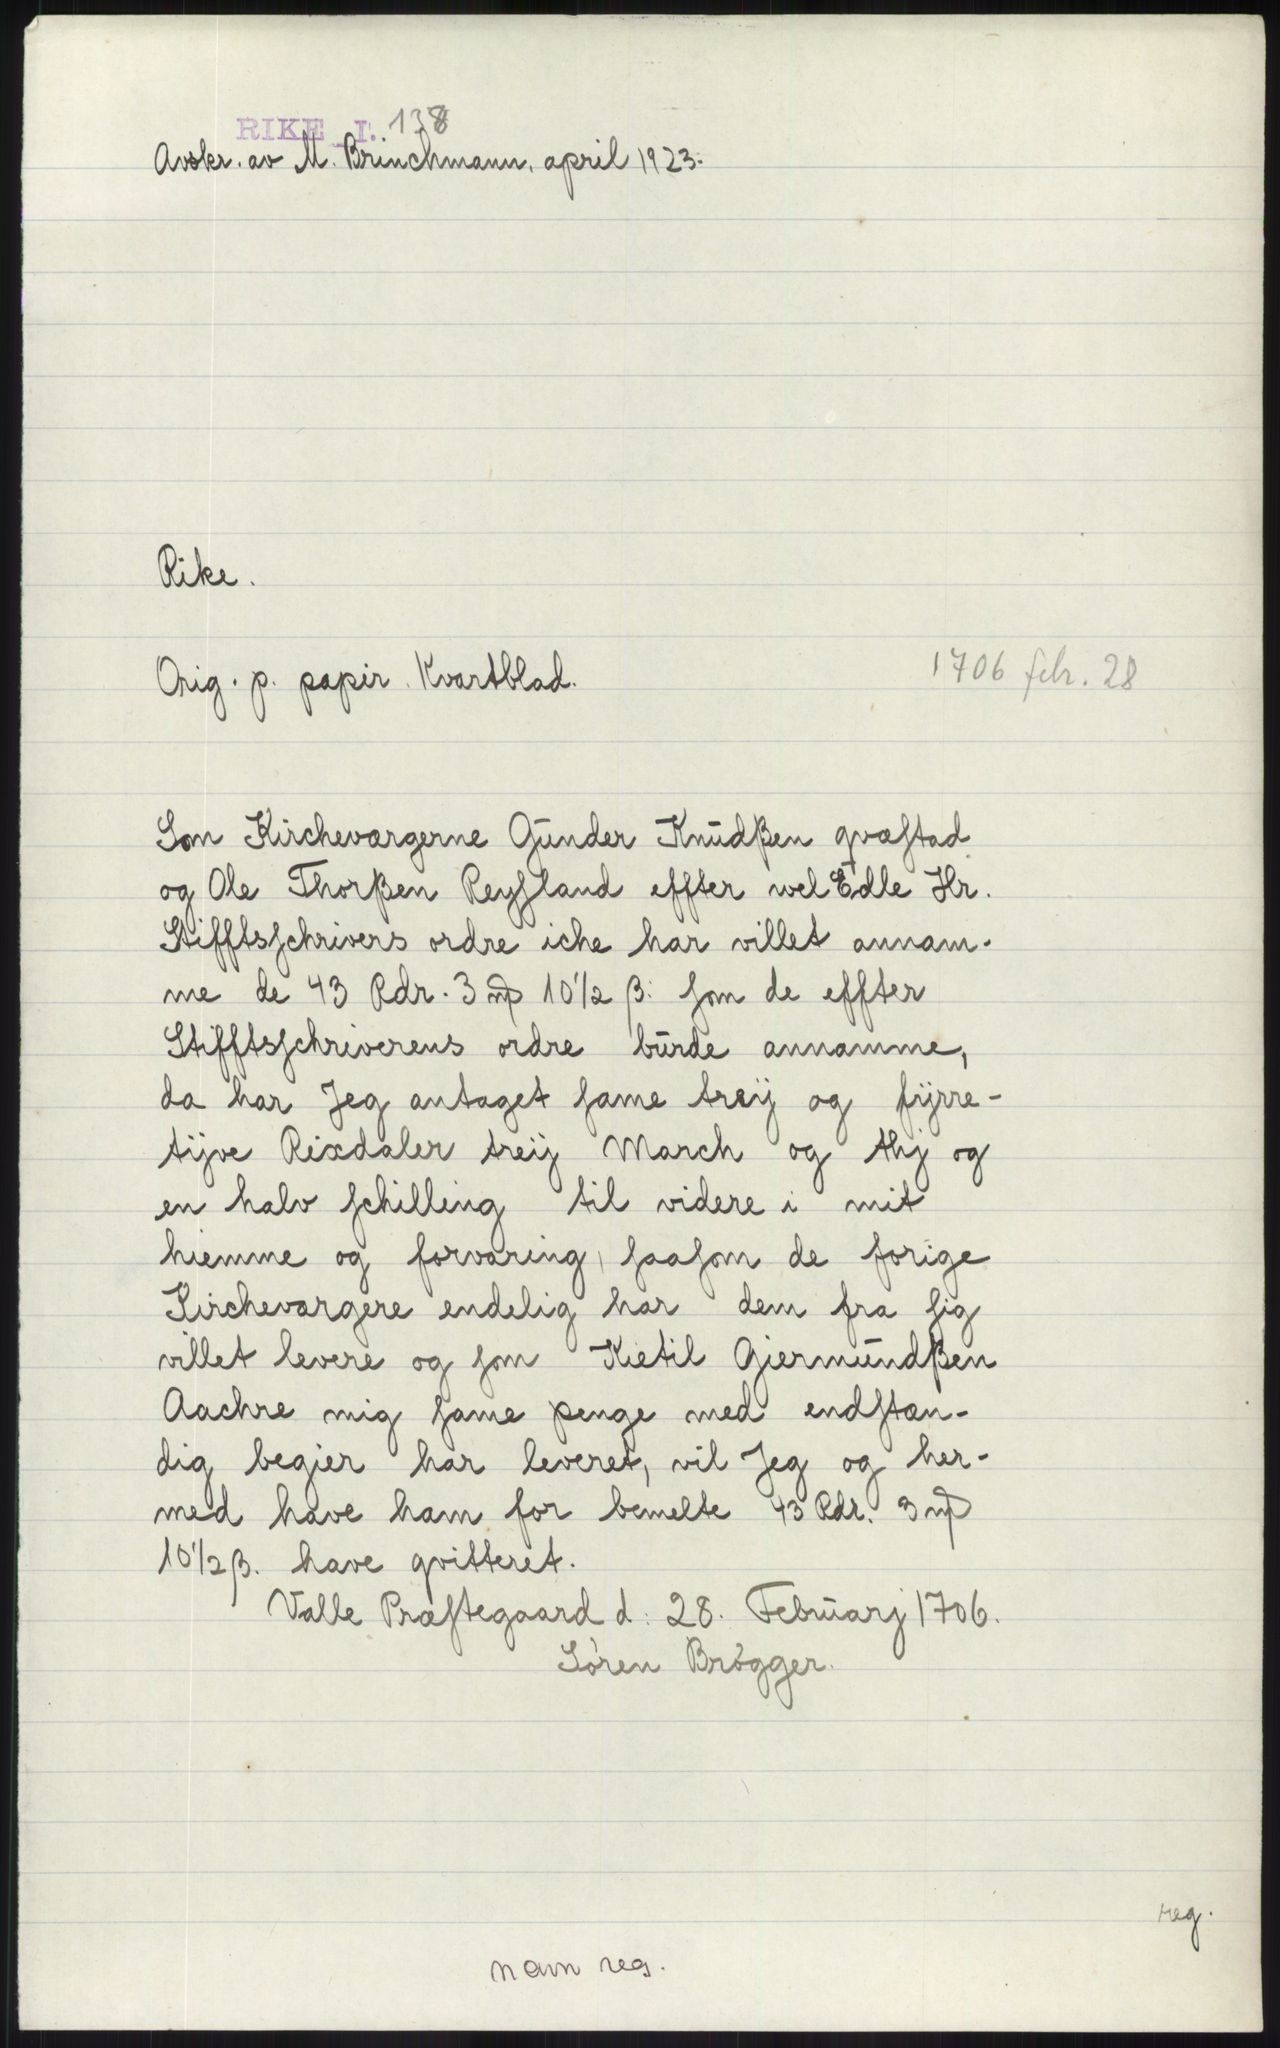 RIKE I. 138
Avskr. av M. Brinchmann, april 1923.
Rike.
Orig. p. papir. Kvartblad.
1706 febr. 28
Som Kircheværgerne Gūnder Knūdßen qvæstad
og Ole Thorßen Reyssland effter wel Edle Hr.
Stifftsschrivers ordre iche har villet annam-
me de 43 Rdr. 3 mp 10 1/2 β: som de effter
Stifftsschriverens ordre būrde annamme,
da har Jeg antaget same treÿ og fÿrre-
tÿve Rixdaler treÿ March og thj og
en halv schilling til videre i mit
hiemme og forvaring, saasom de forige
Kircheværgere endelig har dem fra sig
villet levere og som Kietil Giermūndßen
Aachre mig same penge med endstæn-
dig begier har leveret, vil Jeg og her-
med have ham for bemelte 43 Rdr. 3 mp
10 1/2 β. have qvitteret.
Valle Præstegaard d: 28. Febrūarj 1706.
Sören Brögger.
reg.
navn reg.